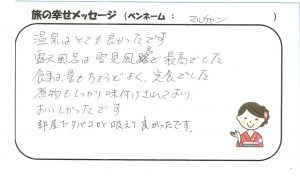 旅の幸せメッセージ (ペンネーム : マルチャン )
温泉はとても良かったです
露天風呂は雪見風呂で最高でした
食事は量もちょうどよく、完食でした
煮物もしっかり味付けされており
おいしかったです
部屋でタバコが吸えて良かったです。